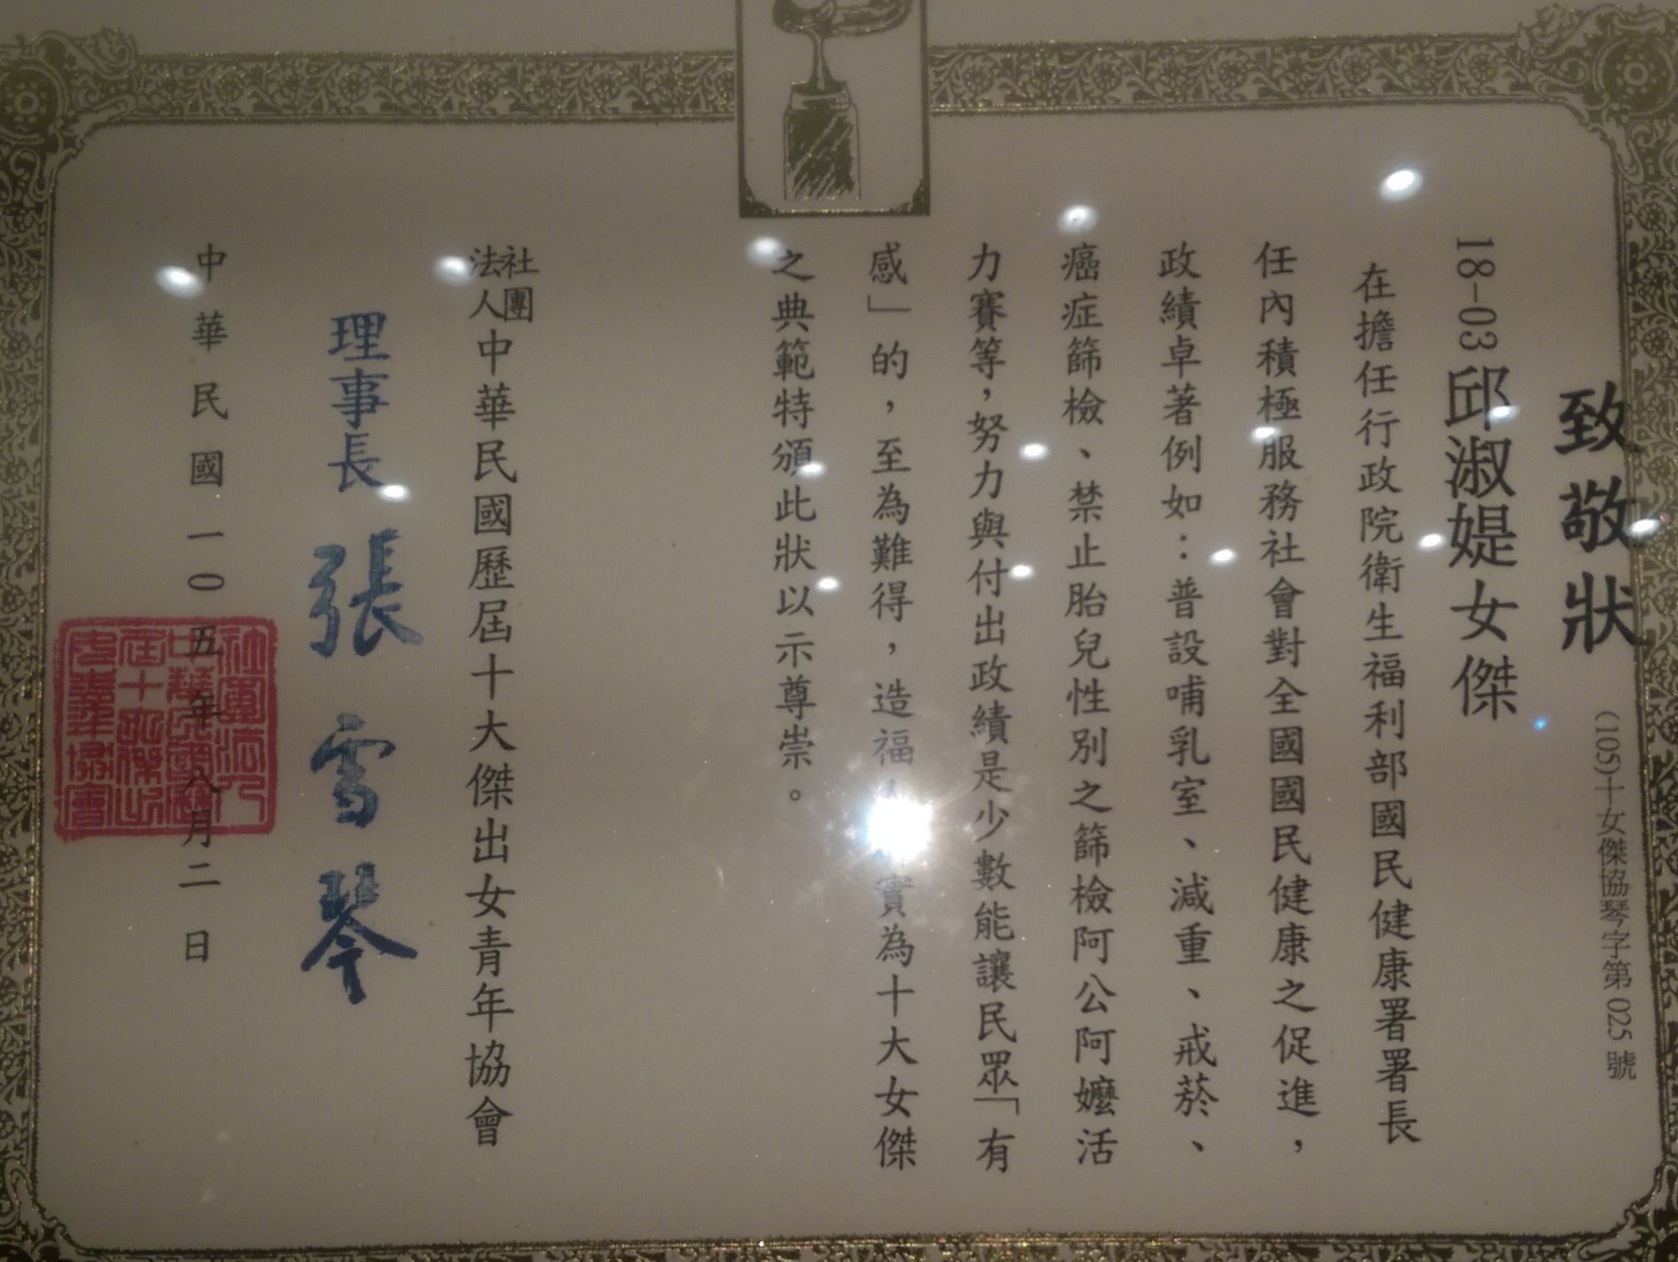 致敬狀
(105)十女傑協琴字第025號
18-03邱淑媞女傑
在擔任行政院衛生福利部國民健康署署長
任內積極服務社會對全國國民健康之促進，
政績卓著例如：普設哺乳室、減重、戒菸、
癌症篩檢、禁止胎兒性別之篩檢阿公阿嬤活
力賽等，努力與付出政績是少數能讓民眾「有
感」的，至為難得，造福 實為十大女傑
之典範特頒此狀以示尊崇。
社團法人中華民國歷屆十大傑出女青年協會
理事長 張雪琴
中華民國一○五年八月二日
社團法人中華民國歷屆十大傑出女青年協會